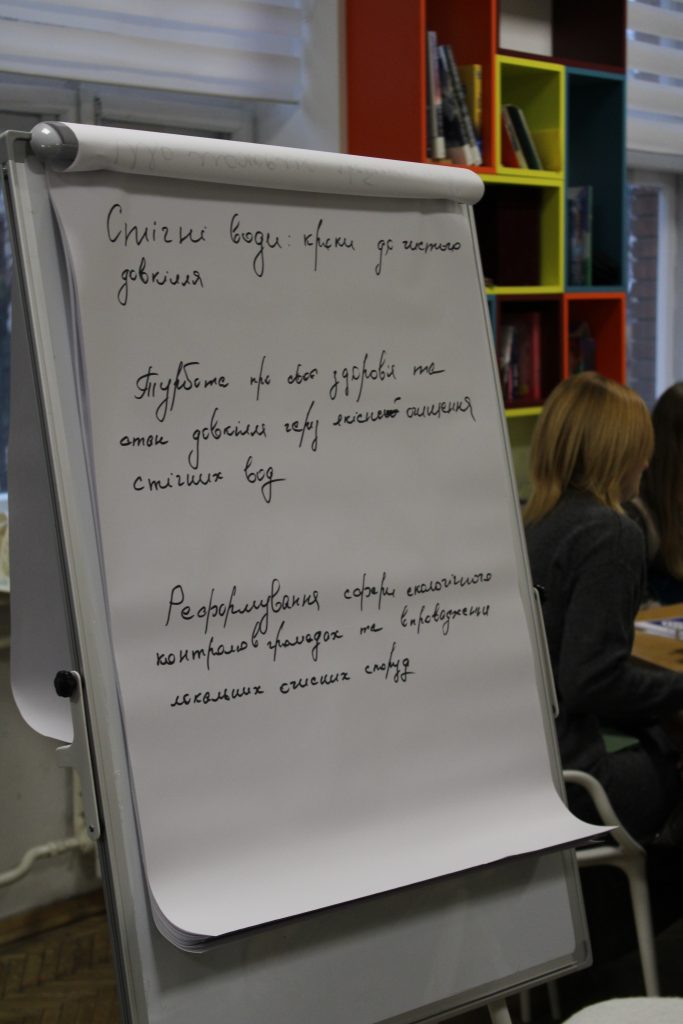 Стічні води: кроки до чистого
довкілля
Турбота про своє здоров'я та
стан довкілля через якісне очищення
стічних вод
Реформування сфери екологічного
контролю в громадах та впровадження
локальних очисних споруд